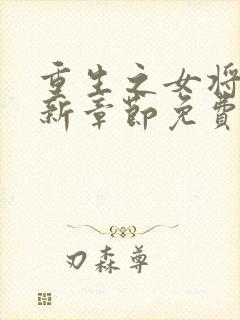 重生之女将
新章节免費
刃森尊